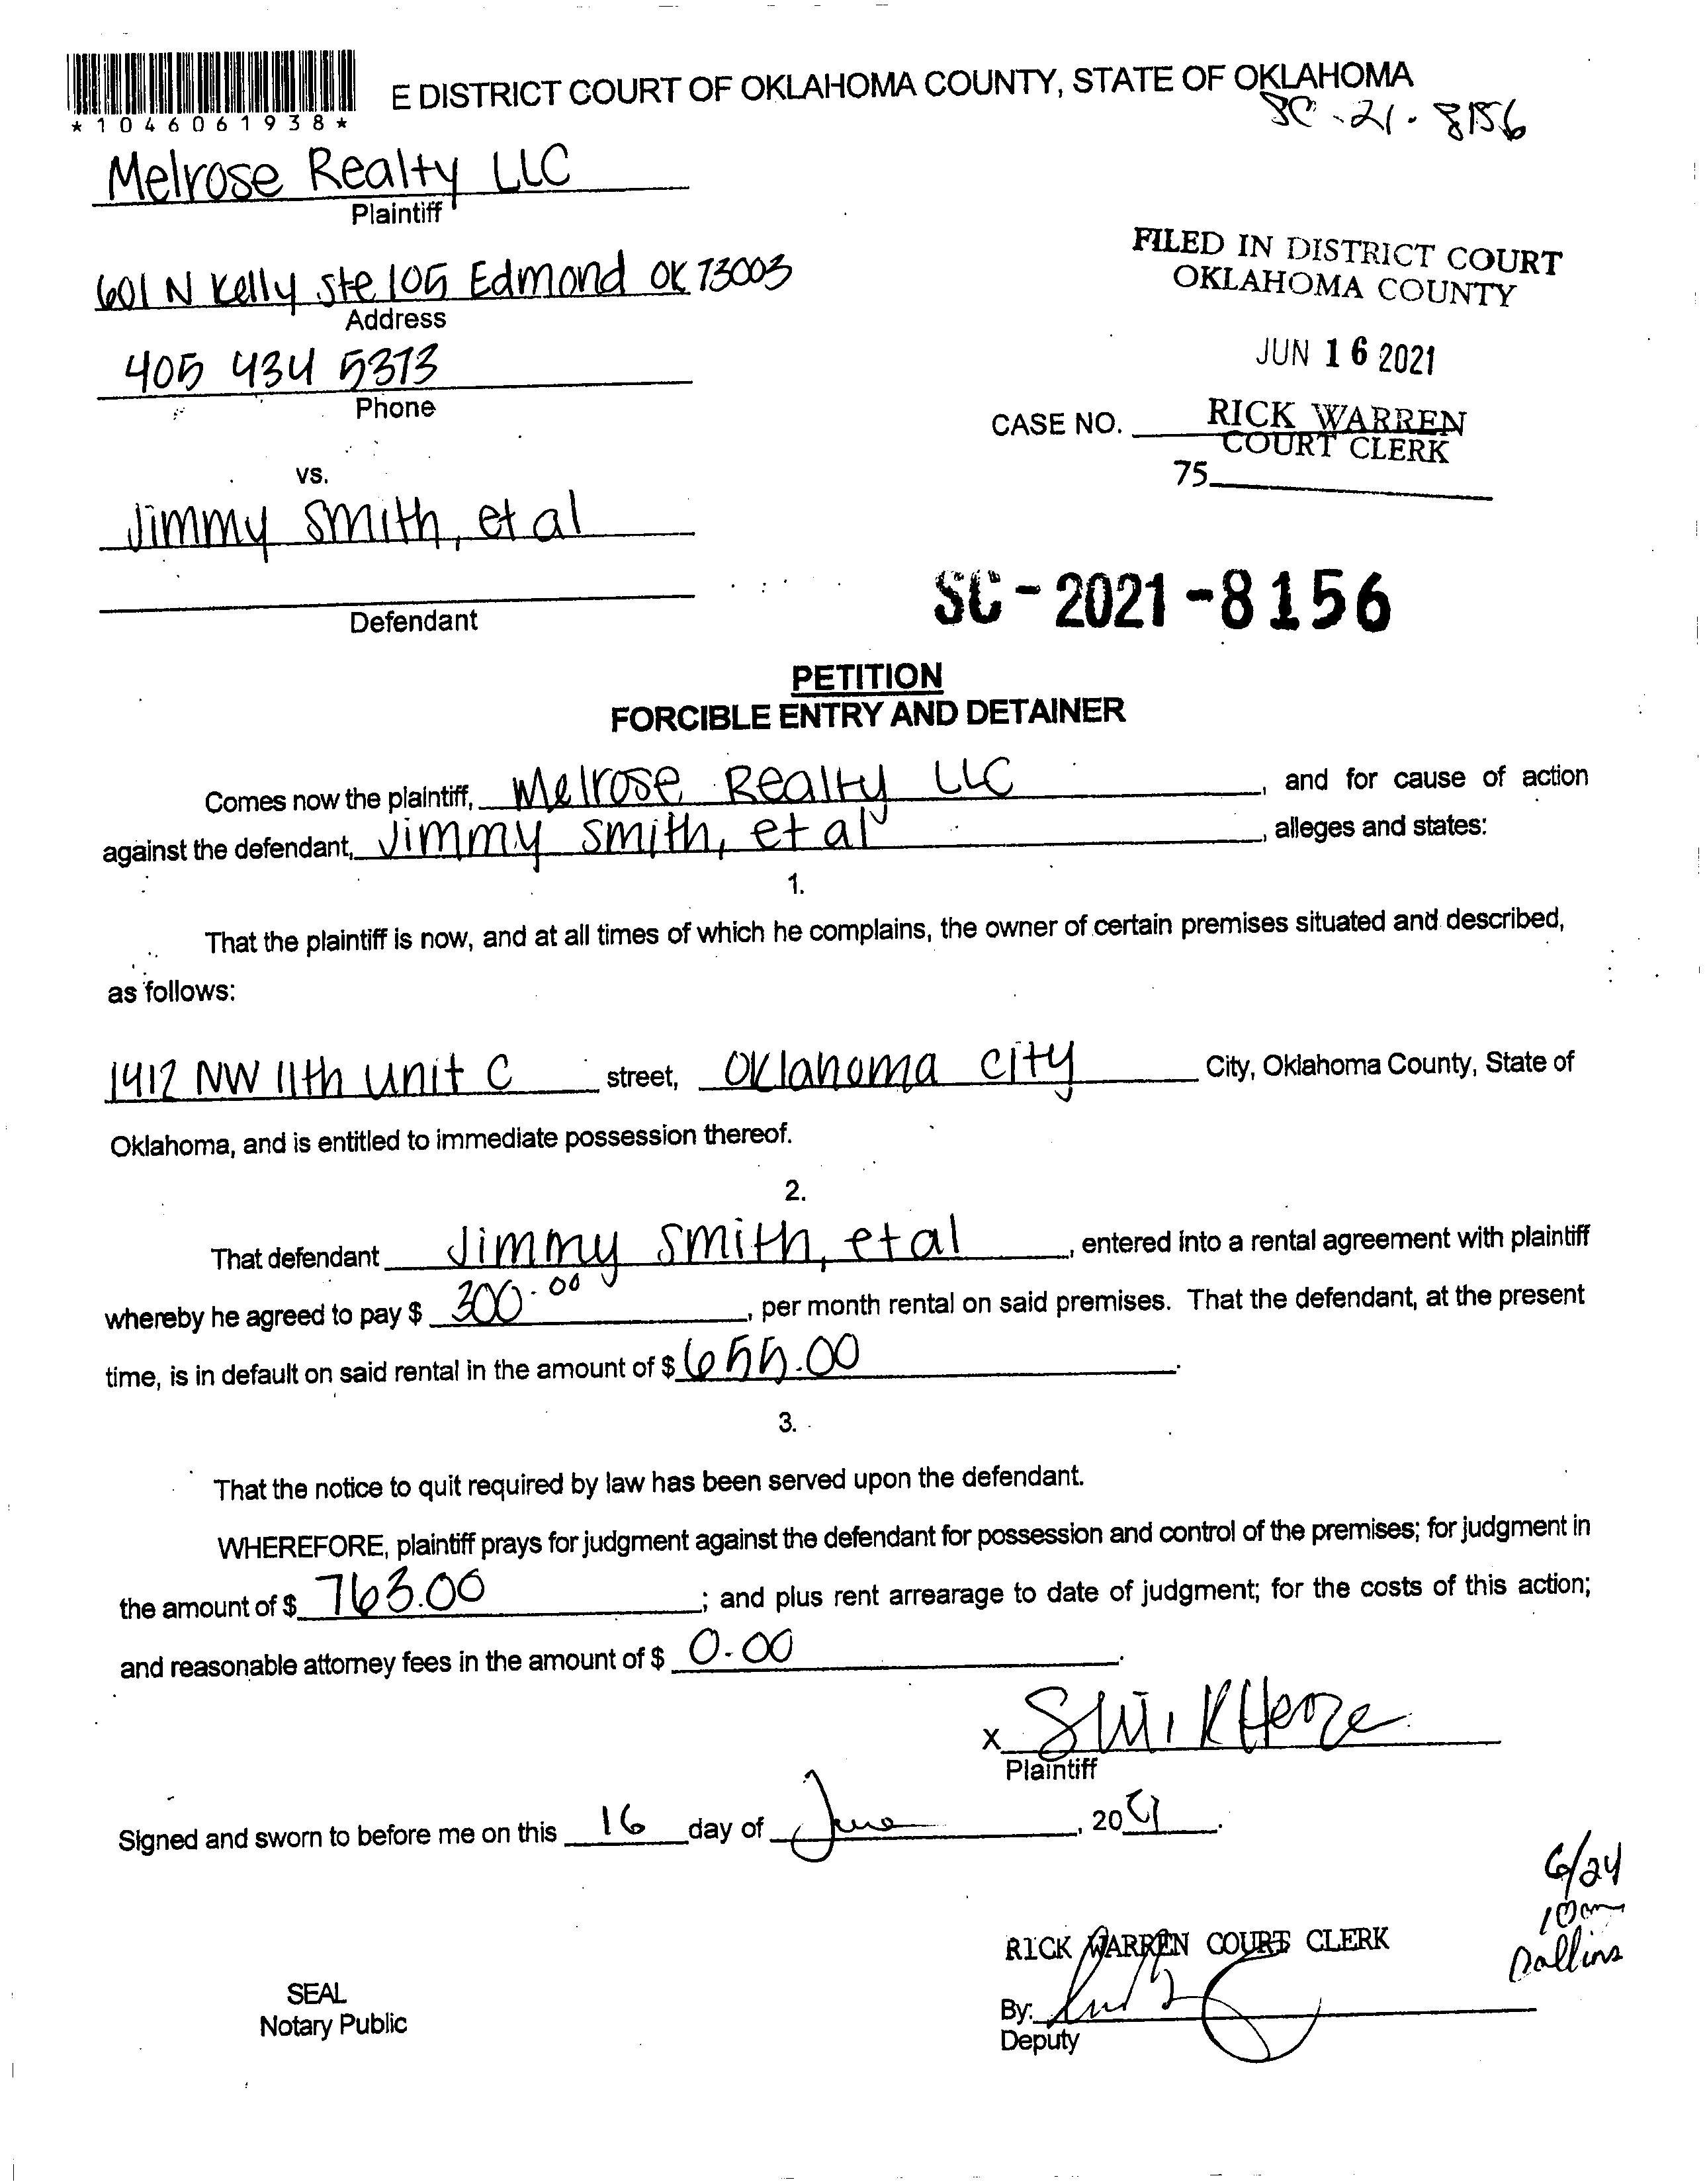 E DISTRICT COURT OF OKLAHOMA COUNTY, STATE OF OKLAHOMA
*1046061938*
SC-21-8156
Melrose Realty LLC
Plaintiff
601 N Kelly Ste 105 Edmond OK 73003
Address
FILED IN DISTRICT COURT
OKLAHOMA COUNTY
405 434 5373
Phone
JUN 16 2021
CASE NO.
RICK WARREN
COURT CLERK
75
vs.
Jimmy Smith, et al
Defendant
SC-2021-8156
PETITION
FORCIBLE ENTRY AND DETAINER
Comes now the plaintiff, Melrose Realty LLC, and for cause of action
against the defendant, Jimmy Smith, et al, alleges and states:
1.
That the plaintiff is now, and at all times of which he complains, the owner of certain premises situated and described,
as follows:
1412 NW 11th Unit C street, Oklahoma City City, Oklahoma County, State of
Oklahoma, and is entitled to immediate possession thereof.
2.
That defendant Jimmy Smith, et al, entered into a rental agreement with plaintiff
whereby he agreed to pay $ 300.00, per month rental on said premises. That the defendant, at the present
time, is in default on said rental in the amount of $ 655.00.
3.
That the notice to quit required by law has been served upon the defendant.
WHEREFORE, plaintiff prays for judgment against the defendant for possession and control of the premises; for judgment in
the amount of $ 763.00; and plus rent arrearage to date of judgment; for the costs of this action;
and reasonable attorney fees in the amount of $ 0.00.
X
Plaintiff
Signed and sworn to before me on this 16 day of June, 2021.
6/24
10am
RICK WARREN COURT CLERK
SEAL
Notary Public
By:
Deputy